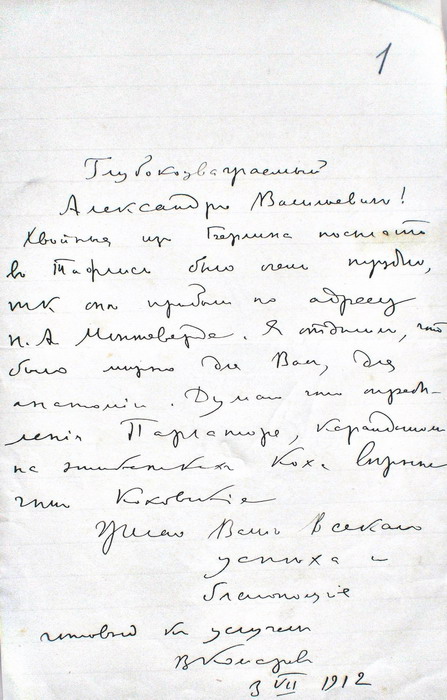 1
Глубокоуважаемый
Александр Васильевич!
Хвойныя из Берлина послать
въ Тифлисъ было очень трудно,
т к они прибыли по адресу
Н. А Монтеверде. Я отдѣлил, что
было нужно для Вас, для
анатоміи. Думаю что опредѣ-
ленія Парлаторе, карандашом
на этикетках Коха вѣрнѣе
чѣм Коховскіе
Желаю Вам всякаго
успѣха и
благополучія
готовый къ услугам
ВКомаров
3 VII 1912